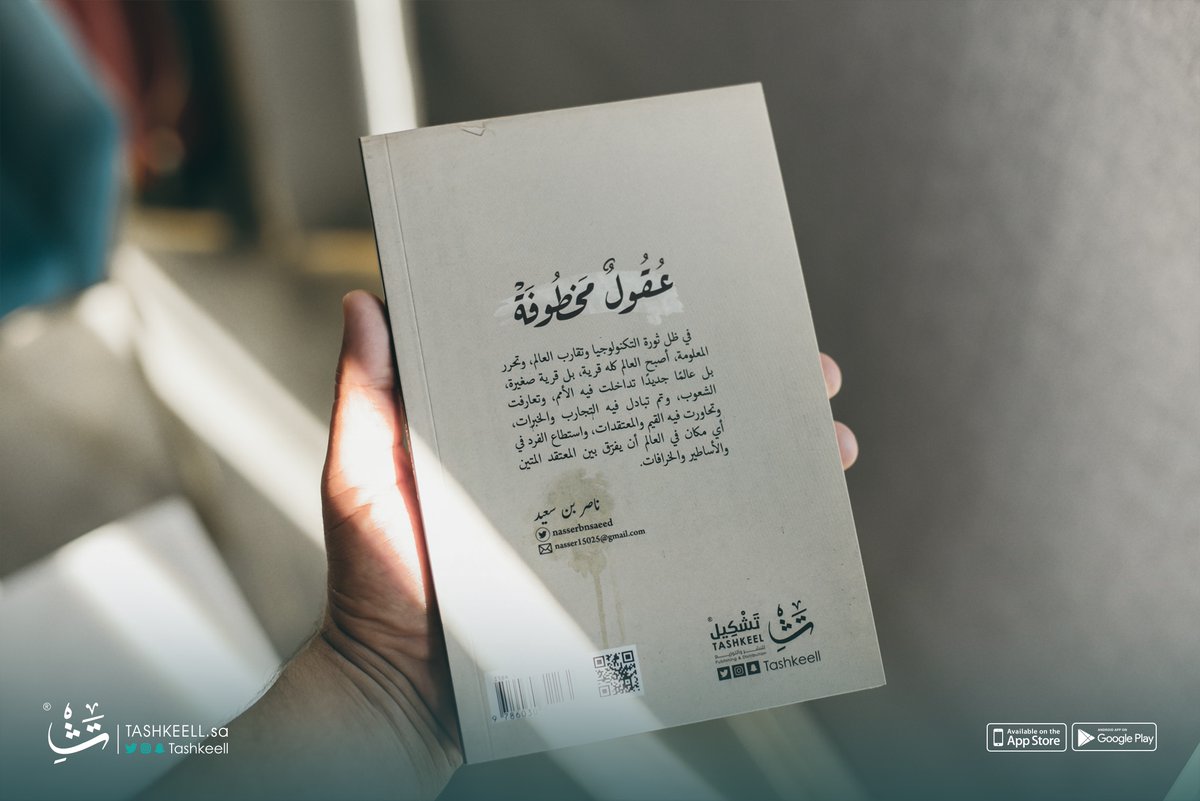 عُقُولٌ مَخطُوفَةْ
في ظل ثورة التكنولوجيا وتقارب العالم، وتحرر
المعلومة، أصبح العالم كله قرية، بل قرية صغيرة،
بل عالمًا جديدًا تداخلت فيه الأمم، وتعارفت
الشعوب، وتم تبادل فيه التجارب والخبرات،
وتحاورت فيه القيم والمعتقدات، واستطاع الفرد في
أي مكان في العالم أن يفرّق بين المعتقد المتين
والأساطير والخرافات.
ناصر بن سعيد
nasserbnsaeed
nasser15025@gmail.com
تَشْكِيل
TASHKEEL
للنشر والتوزيع
Publishing & Distribution
Tashkeell
TASHKEELL.sa
Tashkeell
Available on the
App Store
ANDROID APP ON
Google Play